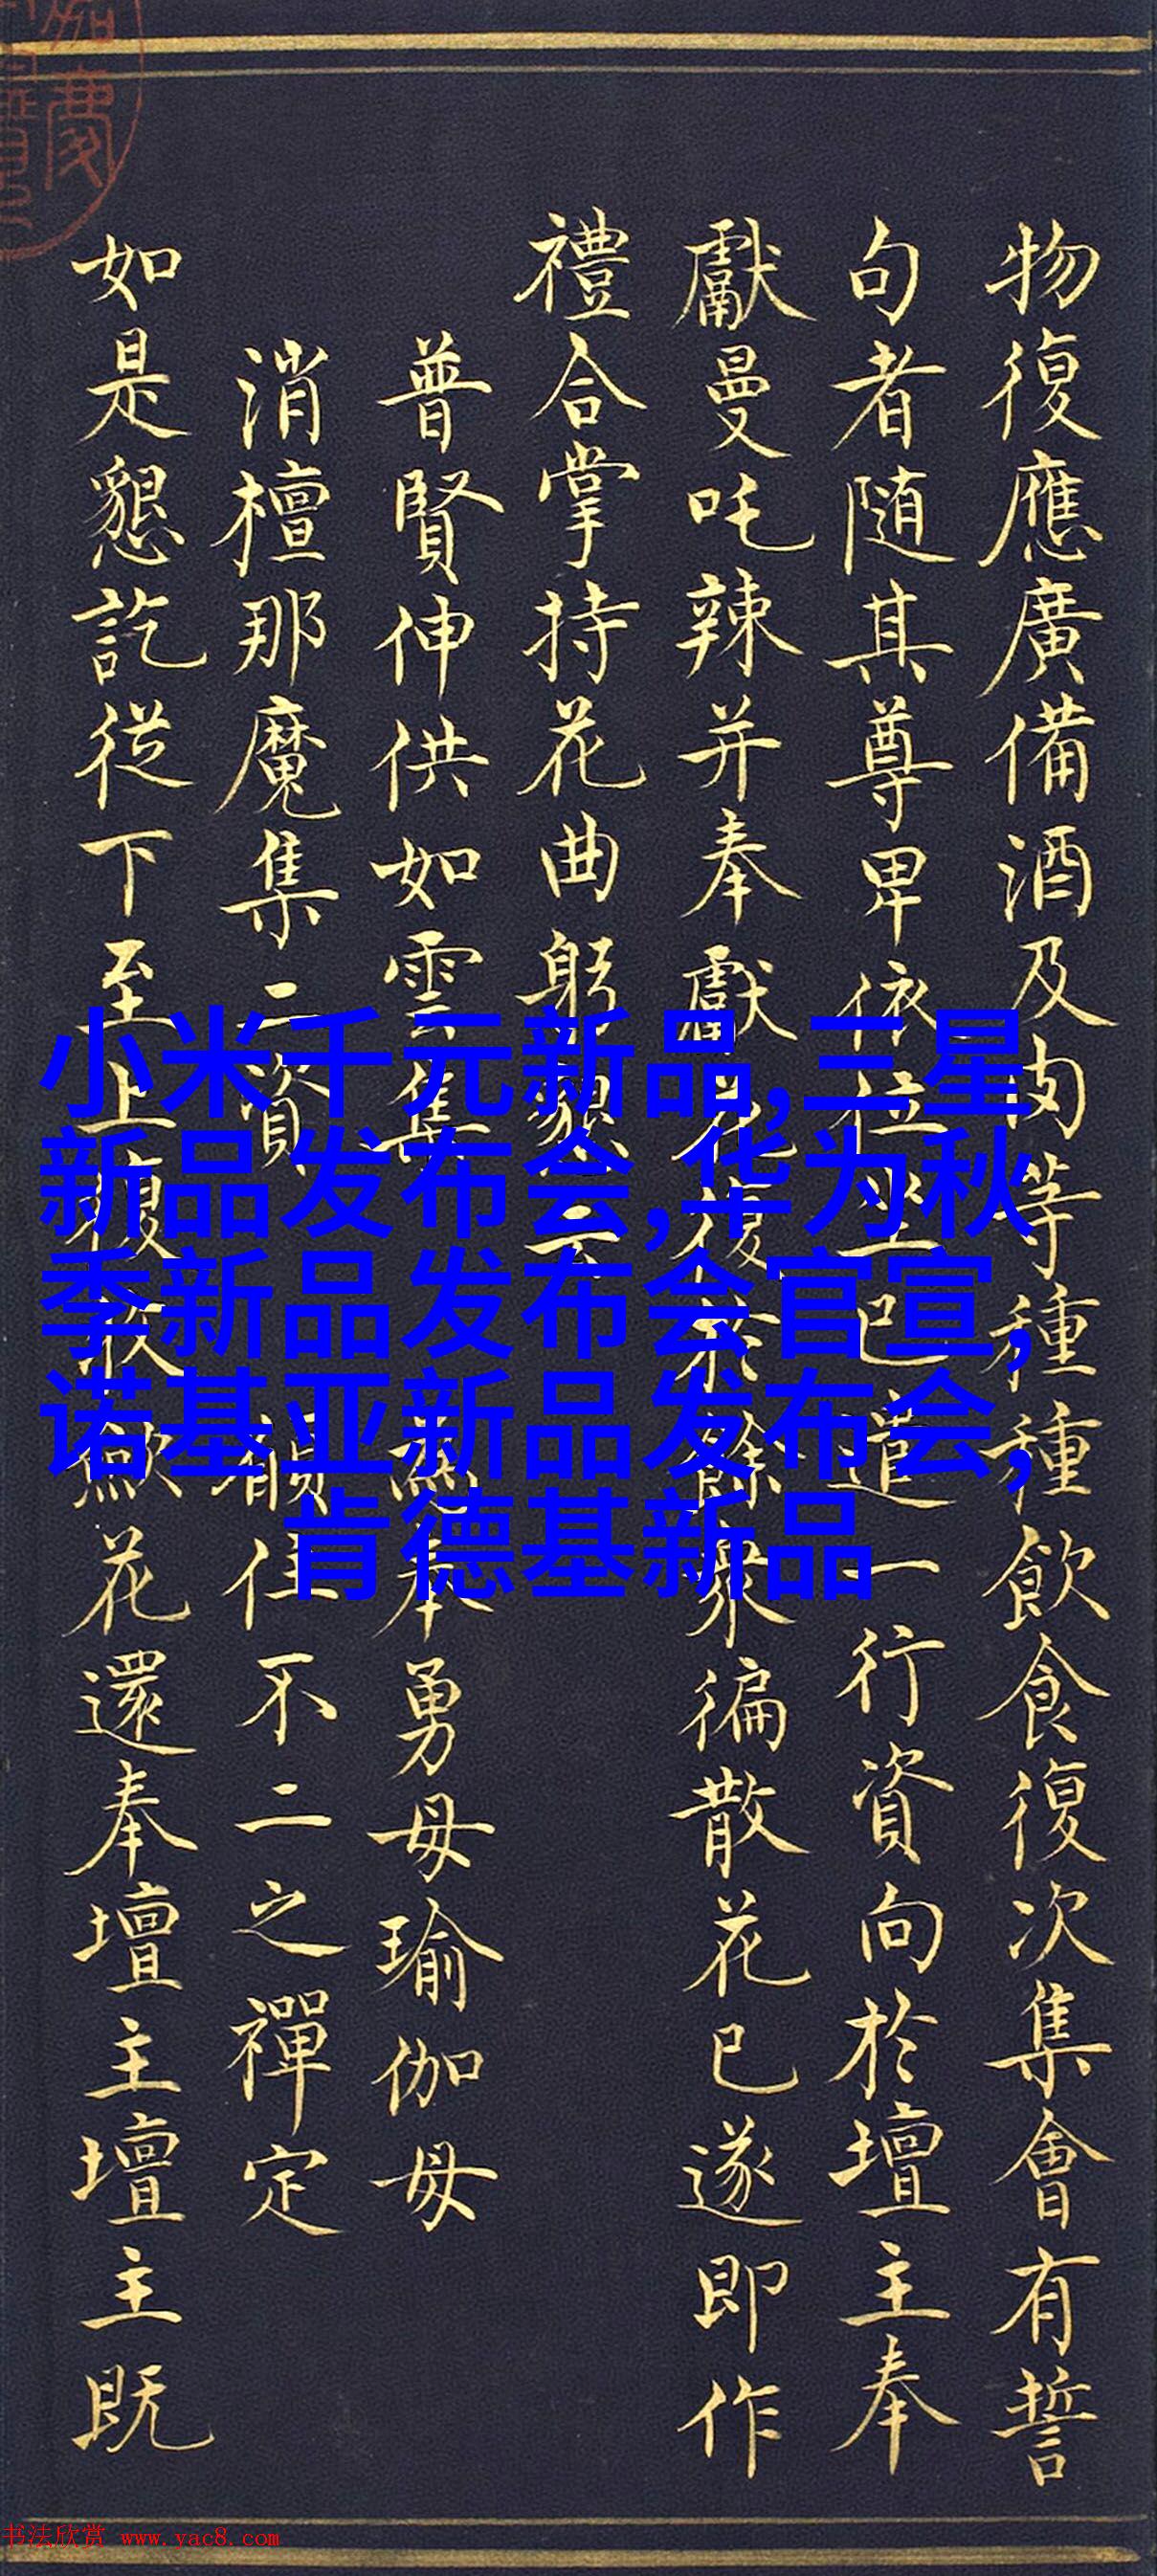 物復應廣備酒及肉等種種飲食復次集會有誓
句者随其尊卑依位坐已遣一行資向於壇主奉
獻曼吒辣并奉獻花復於餘衆徧散花已遂即作
禮合掌持花曲躬云
普賢伸供如雲集 奉勇母瑜伽母
消檀那魔集二資 願住不二之禪定
如是懇訖從下至上復散獻花還奉壇主壇主既
小米千元新品,三星
新品发布会,华为秋
季新品发布会官宣,
诺基亚新品发布会,
肯德基新品
书法欣赏 www.yac8.com